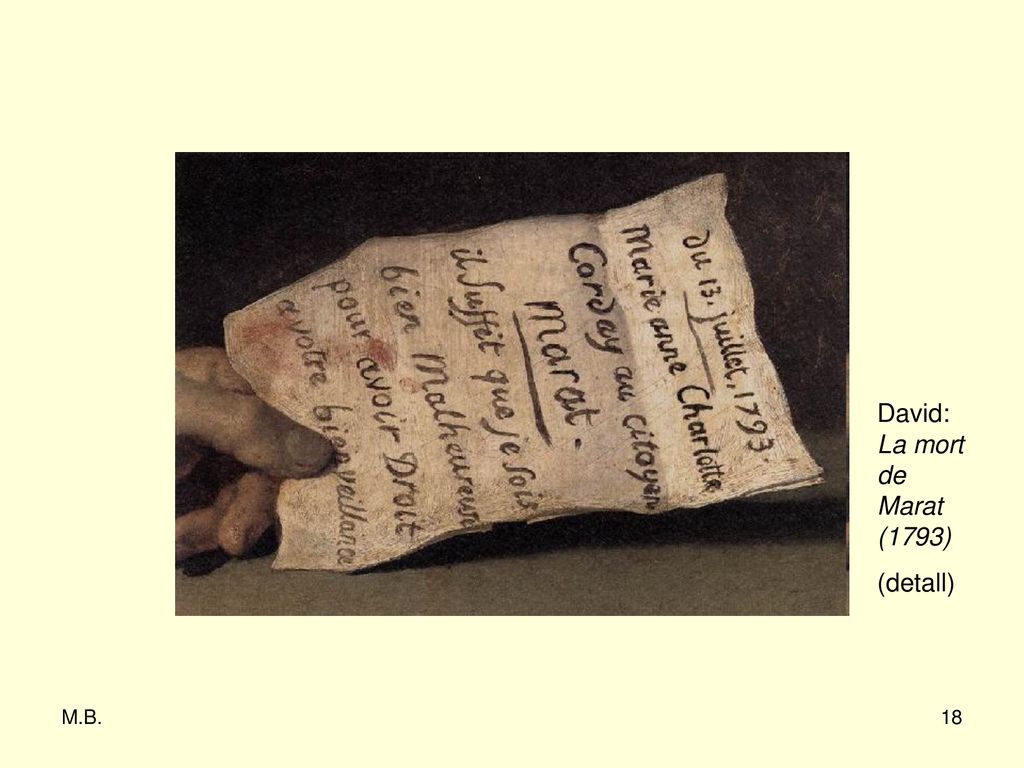 du 13. juillet, 1793.
Marie anne Charlotte
Corday au citoyen
Marat.
il suffit que je sois
bien Malheureuse
pour avoir Droit
a votre bienveillance
David:
La mort
de
Marat
(1793)
(detall)
M.B.
18